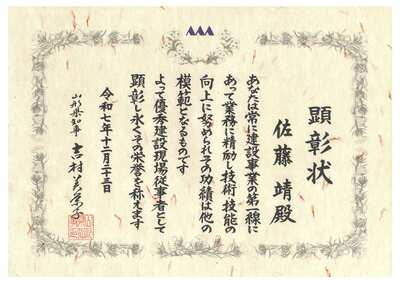 顕彰状
佐藤靖殿
あなたは常に建設事業の第一線に
あって業務に精励し技術技能の
向上に努められその功績は他の
模範となるものです
よって優秀建設現場従事者として
顕彰し永くその栄誉を称えます
令和七年十一月二十三日
山形県知事 吉村美栄子